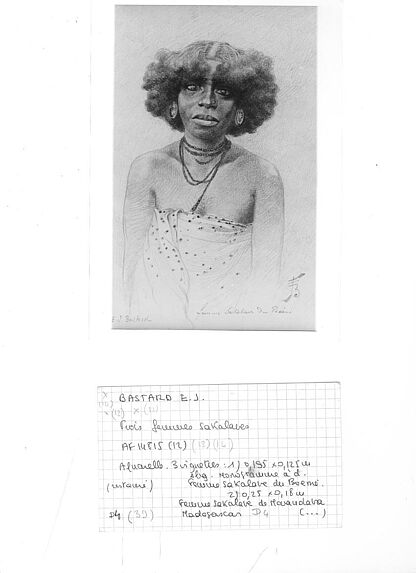 E.J. Bastard
Femme Sakalave du Boéni
BASTARD E.J.
Trois femmes Sakalaves
AF 14815 (12) (13) (14)
Aquarelle. 3 vignettes : 1) 0,195 x 0,125 m
Sbg. Monogramme à d.
Femme Sakalave du Boéni.
2) 0,25 x 0,18 m
Femme Sakalave de Morandava
(39) Madagascar D4 (...)